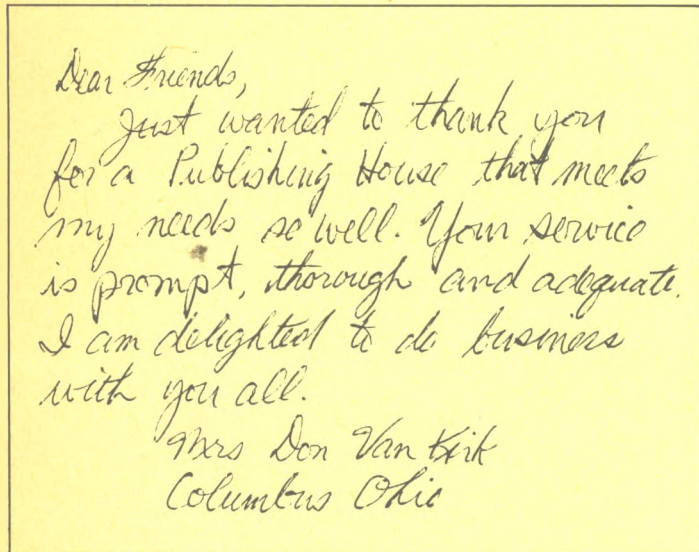 Dear Friends,
Just wanted to thank you
for a Publishing House that meets
my needs so well. Your service
is prompt, thorough and adequate.
I am delighted to do business
with you all.
Mrs Don Van Kirk
Columbus Ohio